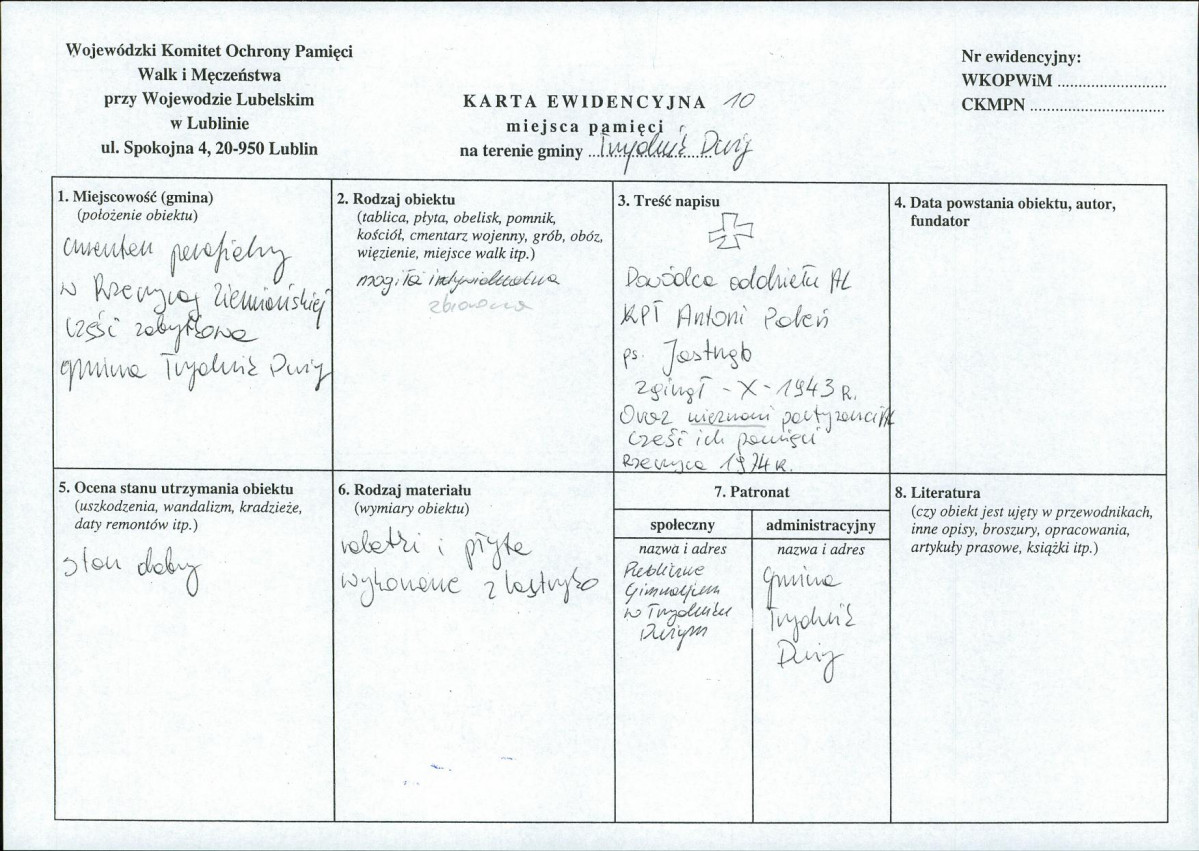 Wojewódzki Komitet Ochrony Pamięci
Walk i Męczeństwa
przy Wojewodzie Lubelskim
w Lublinie
ul. Spokojna 4, 20-950 Lublin
KARTA EWIDENCYJNA 10
miejsca pamięci
na terenie gminy Trzydnik Duży
Nr ewidencyjny:
WKOPWiM ...........................
CKMPN .................................
1. Miejscowość (gmina)
(położenie obiektu)
cmentarz parafialny
w Rzeczycy Ziemiańskiej
część zabytkowa
gmina Trzydnik Duży
2. Rodzaj obiektu
(tablica, płyta, obelisk, pomnik,
kościół, cmentarz wojenny, grób, obóz,
więzienie, miejsce walk itp.)
mogiła indywidualna
zbiorowa
3. Treść napisu
Dowódca oddziału AL
KPT Antoni Paleń
ps. Jastrząb
zginął - X - 1943 R.
Oraz nieznani partyzanci AL
Cześć ich pamięci
Rzeczyca 1974 R.
4. Data powstania obiektu, autor,
fundator
5. Ocena stanu utrzymania obiektu
(uszkodzenia, wandalizm, kradzieże,
daty remontów itp.)
stan dobry
6. Rodzaj materiału
(wymiary obiektu)
i płyta
wykonane z lastryko
7. Patronat
społeczny
nazwa i adres
Publiczne
Gimnazjum
w Trzydniku
Dużym
administracyjny
nazwa i adres
Gmina
Trzydnik
Duży
8. Literatura
(czy obiekt jest ujęty w przewodnikach,
inne opisy, broszury, opracowania,
artykuły prasowe, książki itp.)